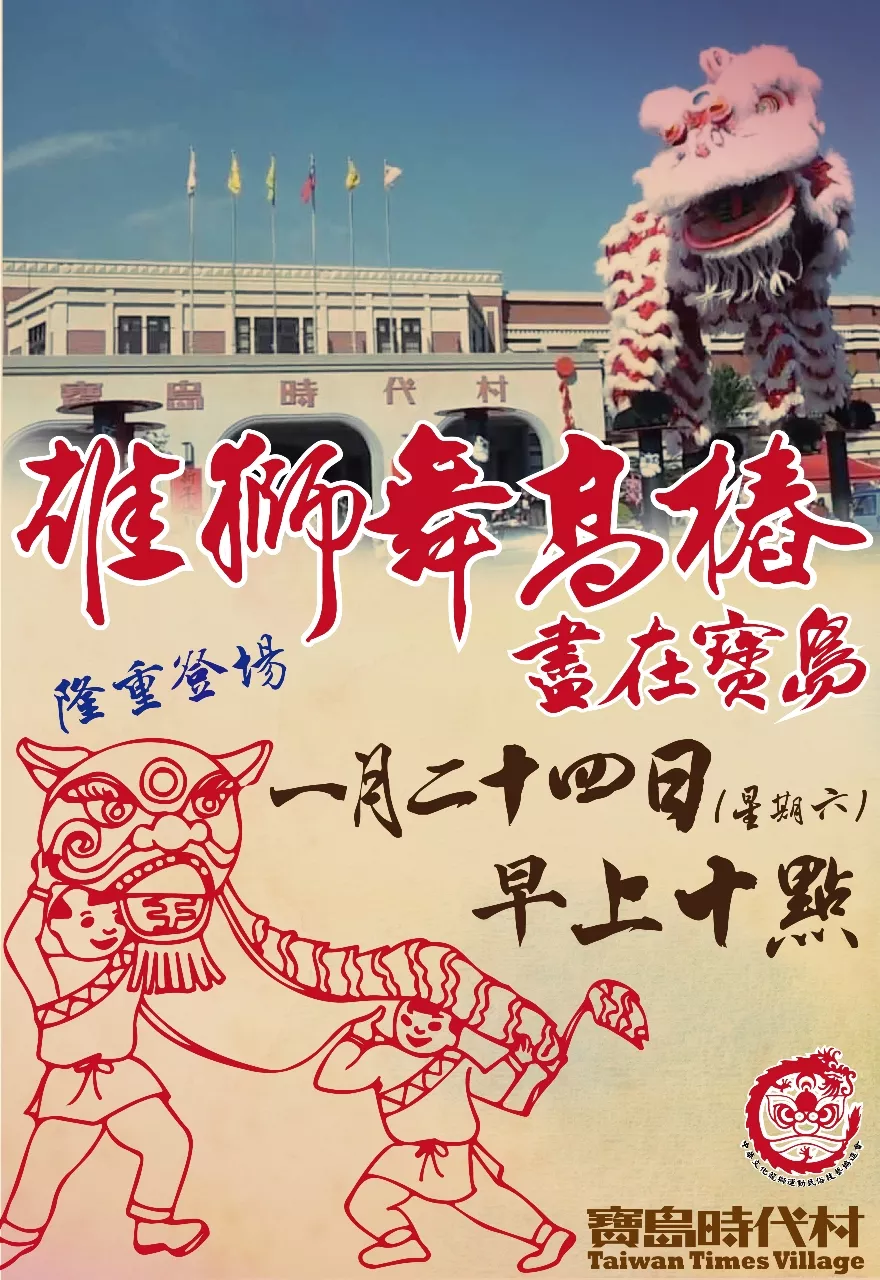 寶島時代村
雄獅舞高樁
盡在寶島
隆重登場
一月二十四日(星期六)
早上十點
寶島時代村
Taiwan Times Village